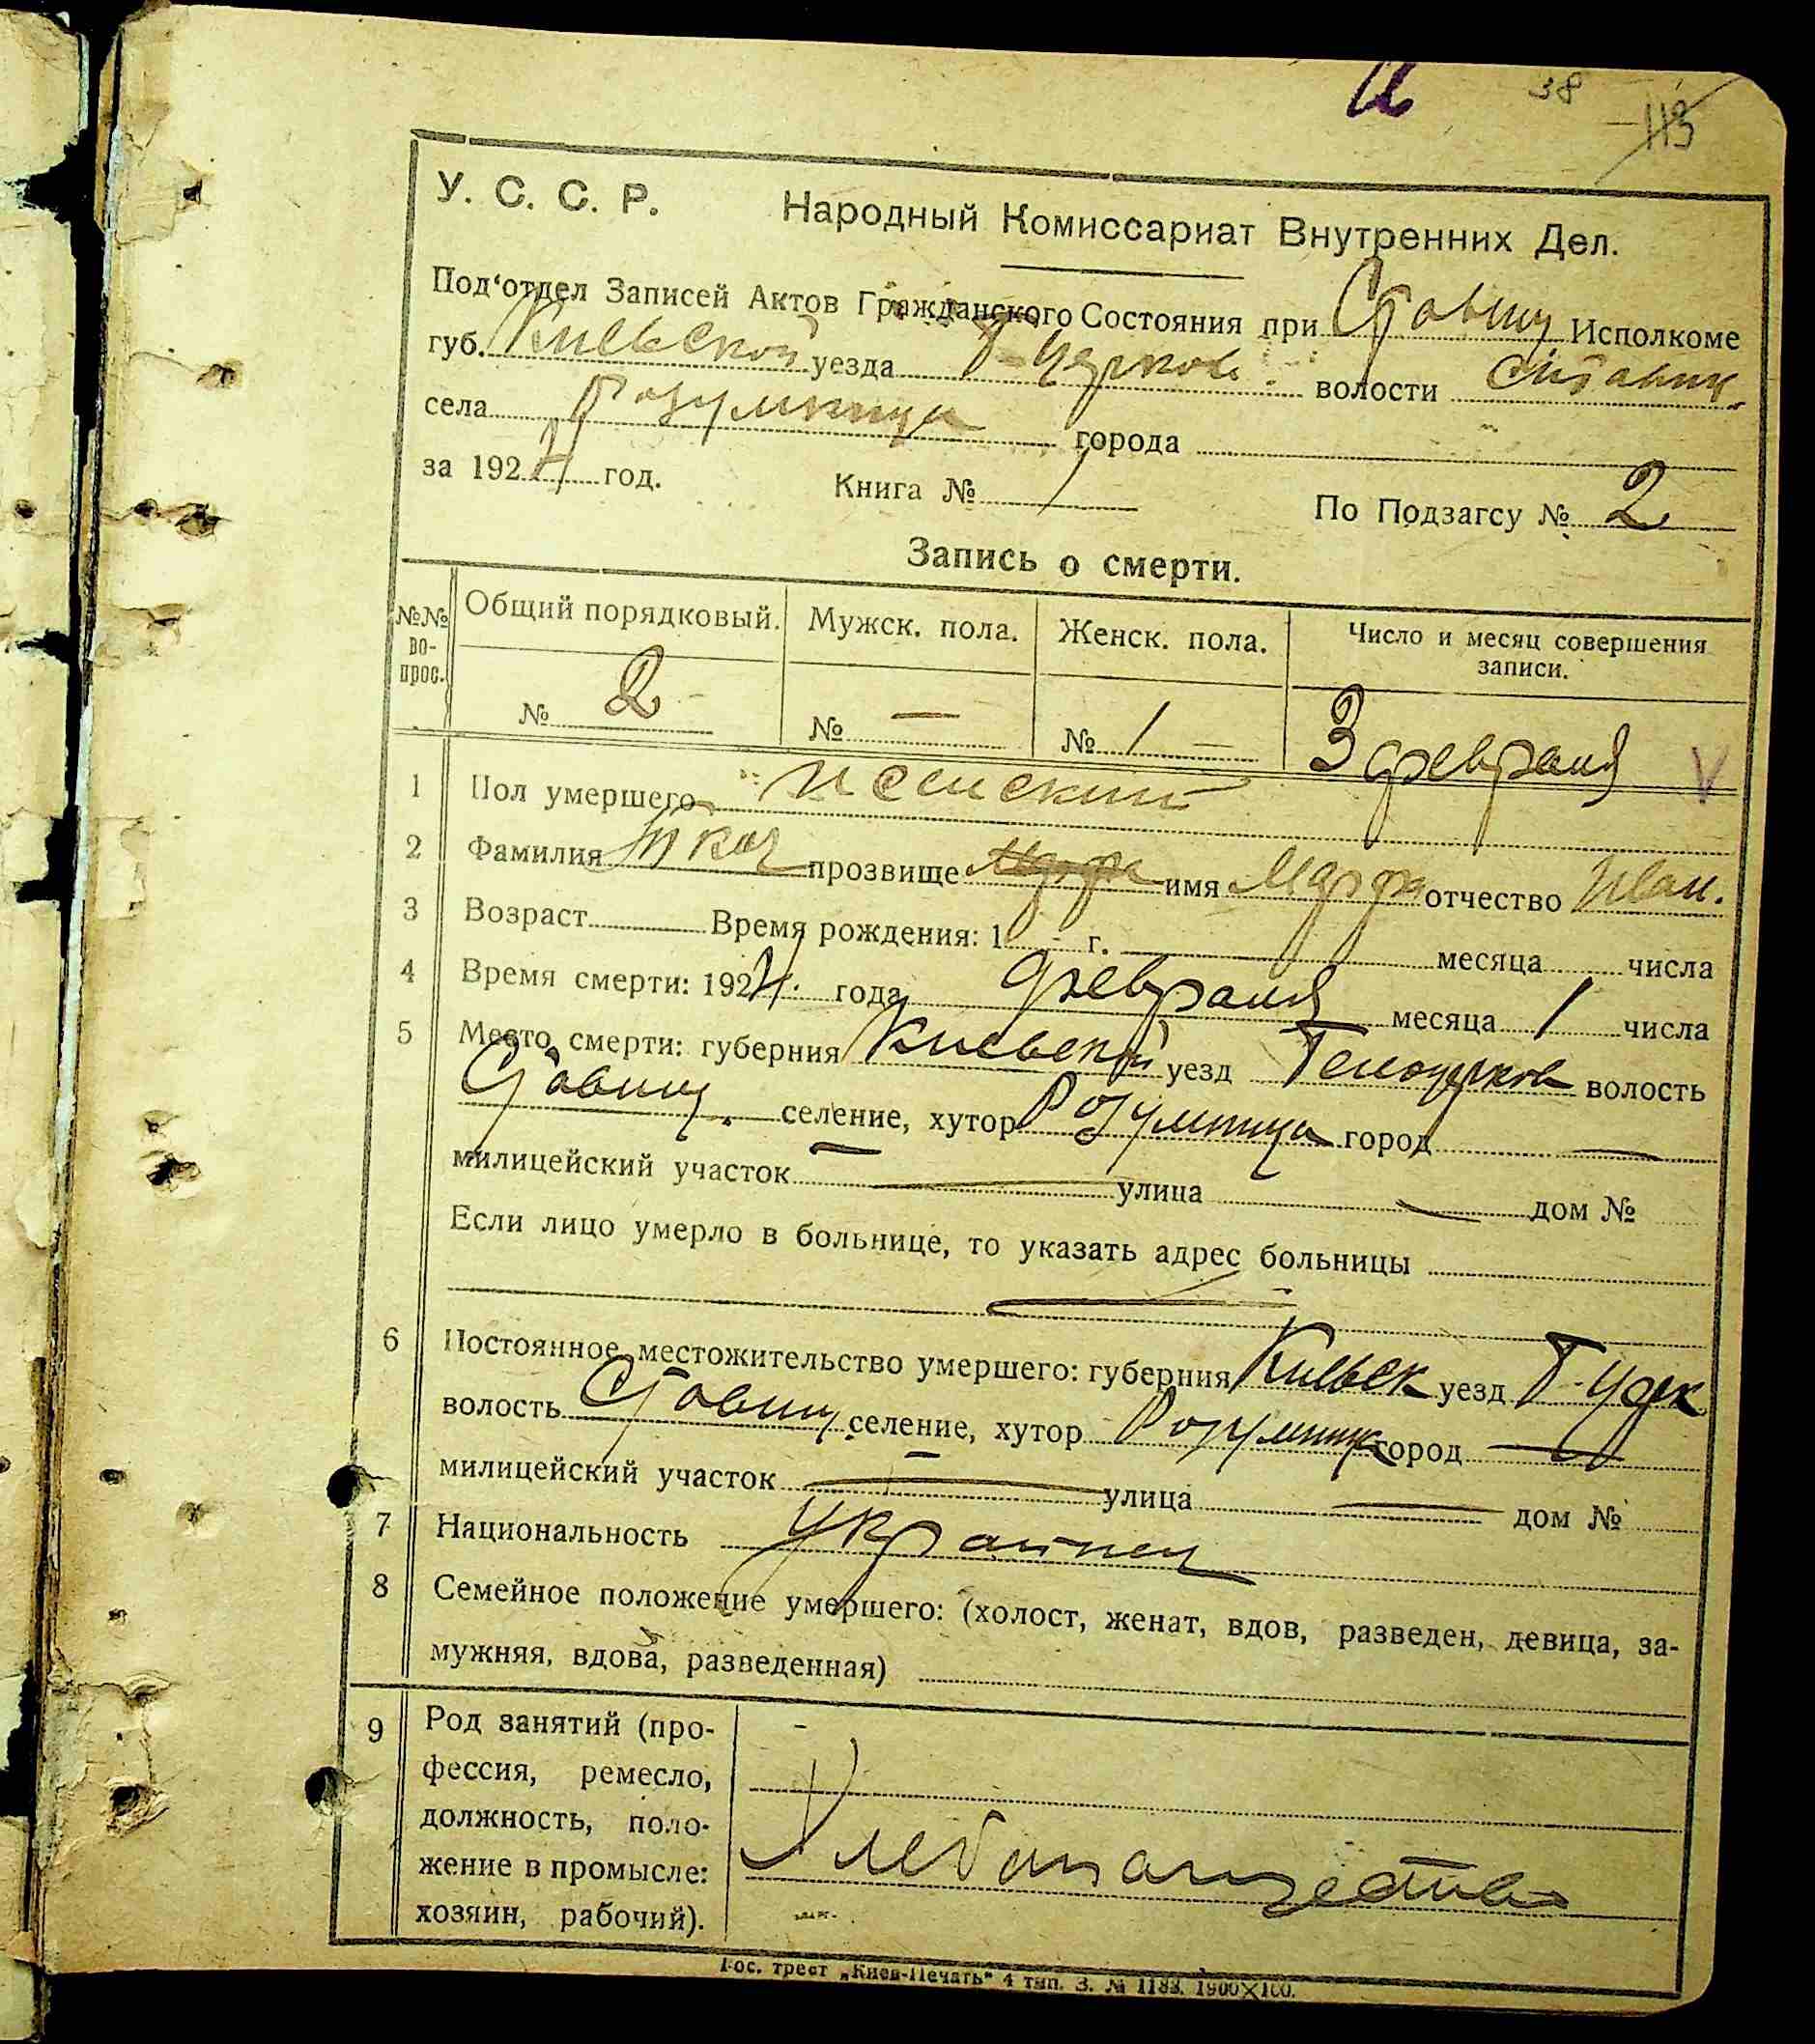 38
113
У. С. С. Р. Народный Комиссариат Внутренних Дел.
Под'отдел Записей Актов Гражданского Состояния при Ставищ Исполкоме
губ. Киевской уезда Б-Церков. волости Ставищ.
села Розумница города
за 1924 год. Книга № 1 По Подзагсу № 2
Запись о смерти.
№№ во-прос. Общий порядковый. Мужск. пола. Женск. пола. Число и месяц совершения записи.
№ 2 № — № 1 — 3 февраля
1 Пол умершего женский
2 Фамилия Ткач прозвище имя Марфа отчество Иван.
3 Возраст Время рождения: 1 - г. месяца числа
4 Время смерти: 1924. года февраля месяца 1 числа
5 Место смерти: губерния Киевской уезд Белоцерков волость
Ставищ. селение, хутор Розумница город —
милицейский участок — улица — дом №
Если лицо умерло в больнице, то указать адрес больницы
—
6 Постоянное местожительство умершего: губерния Киевск уезд Б-Церк
волость Ставищ. селение, хутор Розумниц город —
милицейский участок — улица — дом №
7 Национальность Украинец
8 Семейное положение умершего: (холост, женат, вдов, разведен, девица, за-
мужняя, вдова, разведенная)
9 Род занятий (про-
фессия, ремесло,
должность, поло-
жение в промысле:
хозяин, рабочий).
Хлебопашество
Гос. трест „Киев-Печать" 4 тип. З. № 1183. 1900×100.